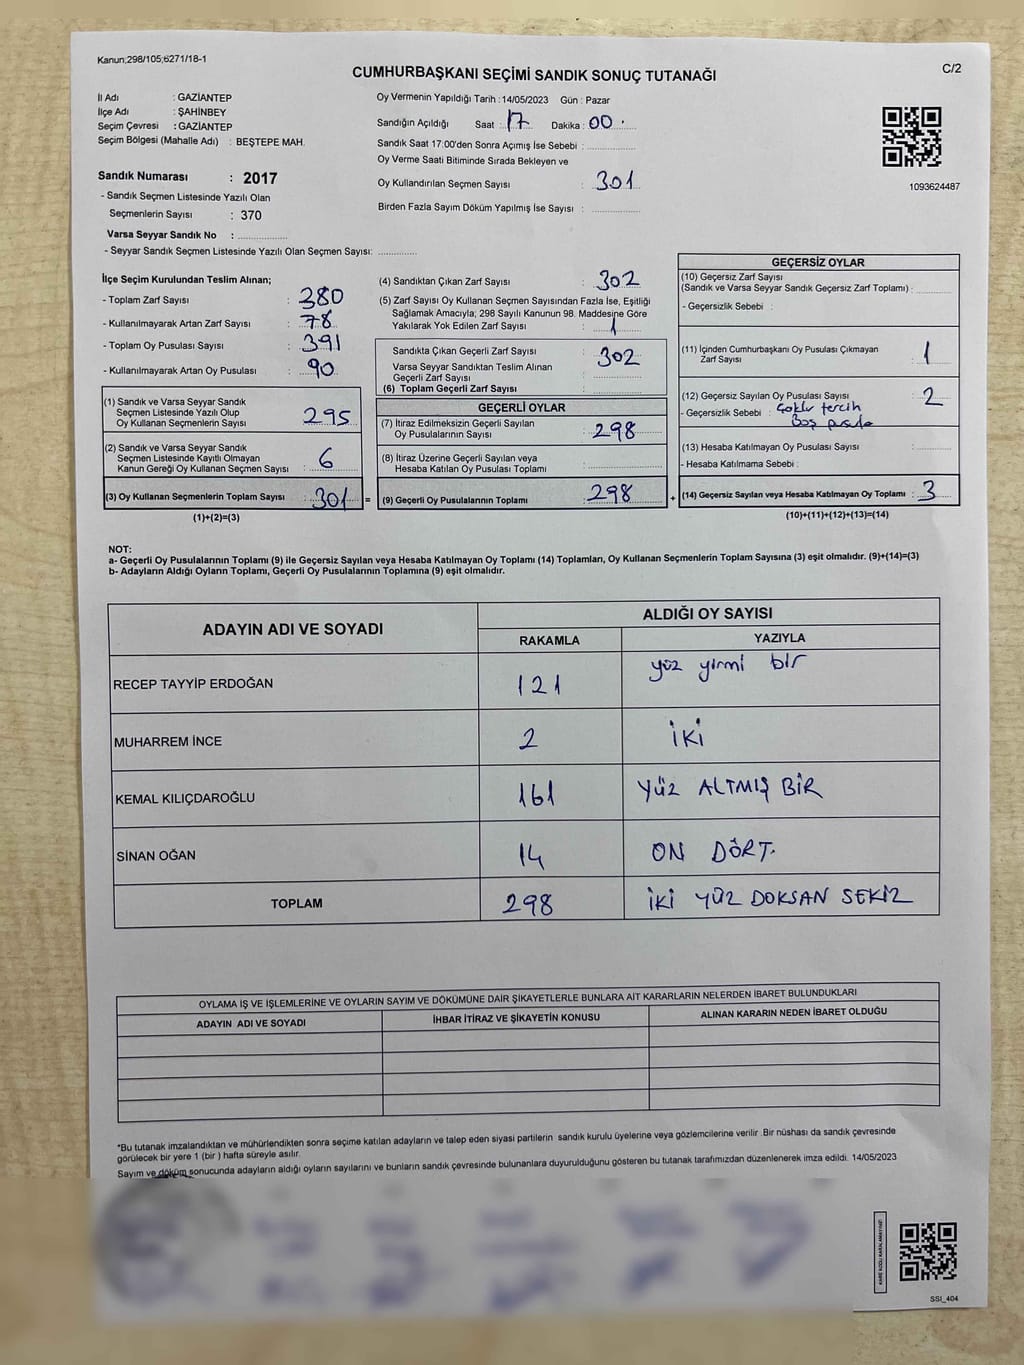 Kanun;298/105;6271/18-1
CUMHURBAŞKANI SEÇİMİ SANDIK SONUÇ TUTANAĞI
C/2
İl Adı : GAZİANTEP
İlçe Adı : ŞAHİNBEY
Seçim Çevresi : GAZİANTEP
Seçim Bölgesi (Mahalle Adı) : BEŞTEPE MAH.
Sandık Numarası : 2017
- Sandık Seçmen Listesinde Yazılı Olan
Seçmenlerin Sayısı : 370
Varsa Seyyar Sandık No : ..............
- Seyyar Sandık Seçmen Listesinde Yazılı Olan Seçmen Sayısı: ............
Oy Vermenin Yapıldığı Tarih : 14/05/2023 Gün : Pazar
Sandığın Açıldığı Saat : 17 Dakika : 00
Sandık Saat 17:00'den Sonra Açımış İse Sebebi : ..............
Oy Verme Saati Bitiminde Sırada Bekleyen ve
Oy Kullandırılan Seçmen Sayısı : 301
Birden Fazla Sayım Döküm Yapılmış İse Sayısı : ..............
1093624487
İlçe Seçim Kurulundan Teslim Alınan;
- Toplam Zarf Sayısı : 380
- Kullanılmayarak Artan Zarf Sayısı : 78
- Toplam Oy Pusulası Sayısı : 391
- Kullanılmayarak Artan Oy Pusulası : 90
(1) Sandık ve Varsa Seyyar Sandık
Seçmen Listesinde Yazılı Olup
Oy Kullanan Seçmenlerin Sayısı : 295
(2) Sandık ve Varsa Seyyar Sandık
Seçmen Listesinde Kayıtlı Olmayan
Kanun Gereği Oy Kullanan Seçmen Sayısı : 6
(3) Oy Kullanan Seçmenlerin Toplam Sayısı : 301 =
(1)+(2)=(3)
(4) Sandıktan Çıkan Zarf Sayısı : 302
(5) Zarf Sayısı Oy Kullanan Seçmen Sayısından Fazla İse, Eşitliği
Sağlamak Amacıyla; 298 Sayılı Kanunun 98. Maddesine Göre
Yakılarak Yok Edilen Zarf Sayısı : 1
Sandıkta Çıkan Geçerli Zarf Sayısı : 302
Varsa Seyyar Sandıktan Teslim Alınan
Geçerli Zarf Sayısı : ..............
(6) Toplam Geçerli Zarf Sayısı : ..............
GEÇERLİ OYLAR
(7) İtiraz Edilmeksizin Geçerli Sayılan
Oy Pusulalarının Sayısı : 298
(8) İtiraz Üzerine Geçerli Sayılan veya
Hesaba Katılan Oy Pusulası Toplamı : ..............
(9) Geçerli Oy Pusulalarının Toplamı : 298 +
GEÇERSİZ OYLAR
(10) Geçersiz Zarf Sayısı
(Sandık ve Varsa Seyyar Sandık Geçersiz Zarf Toplamı) : ............
- Geçersizlik Sebebi :
(11) İçinden Cumhurbaşkanı Oy Pusulası Çıkmayan
Zarf Sayısı : 1
(12) Geçersiz Sayılan Oy Pusulası Sayısı : 2
- Geçersizlik Sebebi : Çoklu tercih
Boş pusula
(13) Hesaba Katılmayan Oy Pusulası Sayısı : ............
- Hesaba Katılmama Sebebi :
(14) Geçersiz Sayılan veya Hesaba Katılmayan Oy Toplamı : 3
(10)+(11)+(12)+(13)=(14)
NOT:
a- Geçerli Oy Pusulalarının Toplamı (9) ile Geçersiz Sayılan veya Hesaba Katılmayan Oy Toplamı (14) Toplamları, Oy Kullanan Seçmenlerin Toplam Sayısına (3) eşit olmalıdır. (9)+(14)=(3)
b- Adayların Aldığı Oyların Toplamı, Geçerli Oy Pusulalarının Toplamına (9) eşit olmalıdır.
ADAYIN ADI VE SOYADI ALDIĞI OY SAYISI
RAKAMLA YAZIYLA
RECEP TAYYİP ERDOĞAN 121 yüz yirmi bir
MUHARREM İNCE 2 İKİ
KEMAL KILIÇDAROĞLU 161 YÜZ ALTMIŞ BİR
SİNAN OĞAN 14 ON DÖRT.
TOPLAM 298 İKİ YÜZ DOKSAN SEKİZ
OYLAMA İŞ VE İŞLEMLERİNE VE OYLARIN SAYIM VE DÖKÜMÜNE DAİR ŞİKAYETLERLE BUNLARA AİT KARARLARIN NELERDEN İBARET BULUNDUKLARI
ADAYIN ADI VE SOYADI İHBAR İTİRAZ VE ŞİKAYETİN KONUSU ALINAN KARARIN NEDEN İBARET OLDUĞU
*Bu tutanak imzalandıktan ve mühürlendikten sonra seçime katılan adayların ve talep eden siyasi partilerin sandık kurulu üyelerine veya gözlemcilerine verilir .Bir nüshası da sandık çevresinde
görülecek bir yere 1 (bir ) hafta süreyle asılır.
Sayım ve döküm sonucunda adayların aldığı oyların sayılarını ve bunların sandık çevresinde bulunanlara duyurulduğunu gösteren bu tutanak tarafımızdan düzenlenerek imza edildi. 14/05/2023
KARE KODU KARALAMAYINIZ!
SSI_404